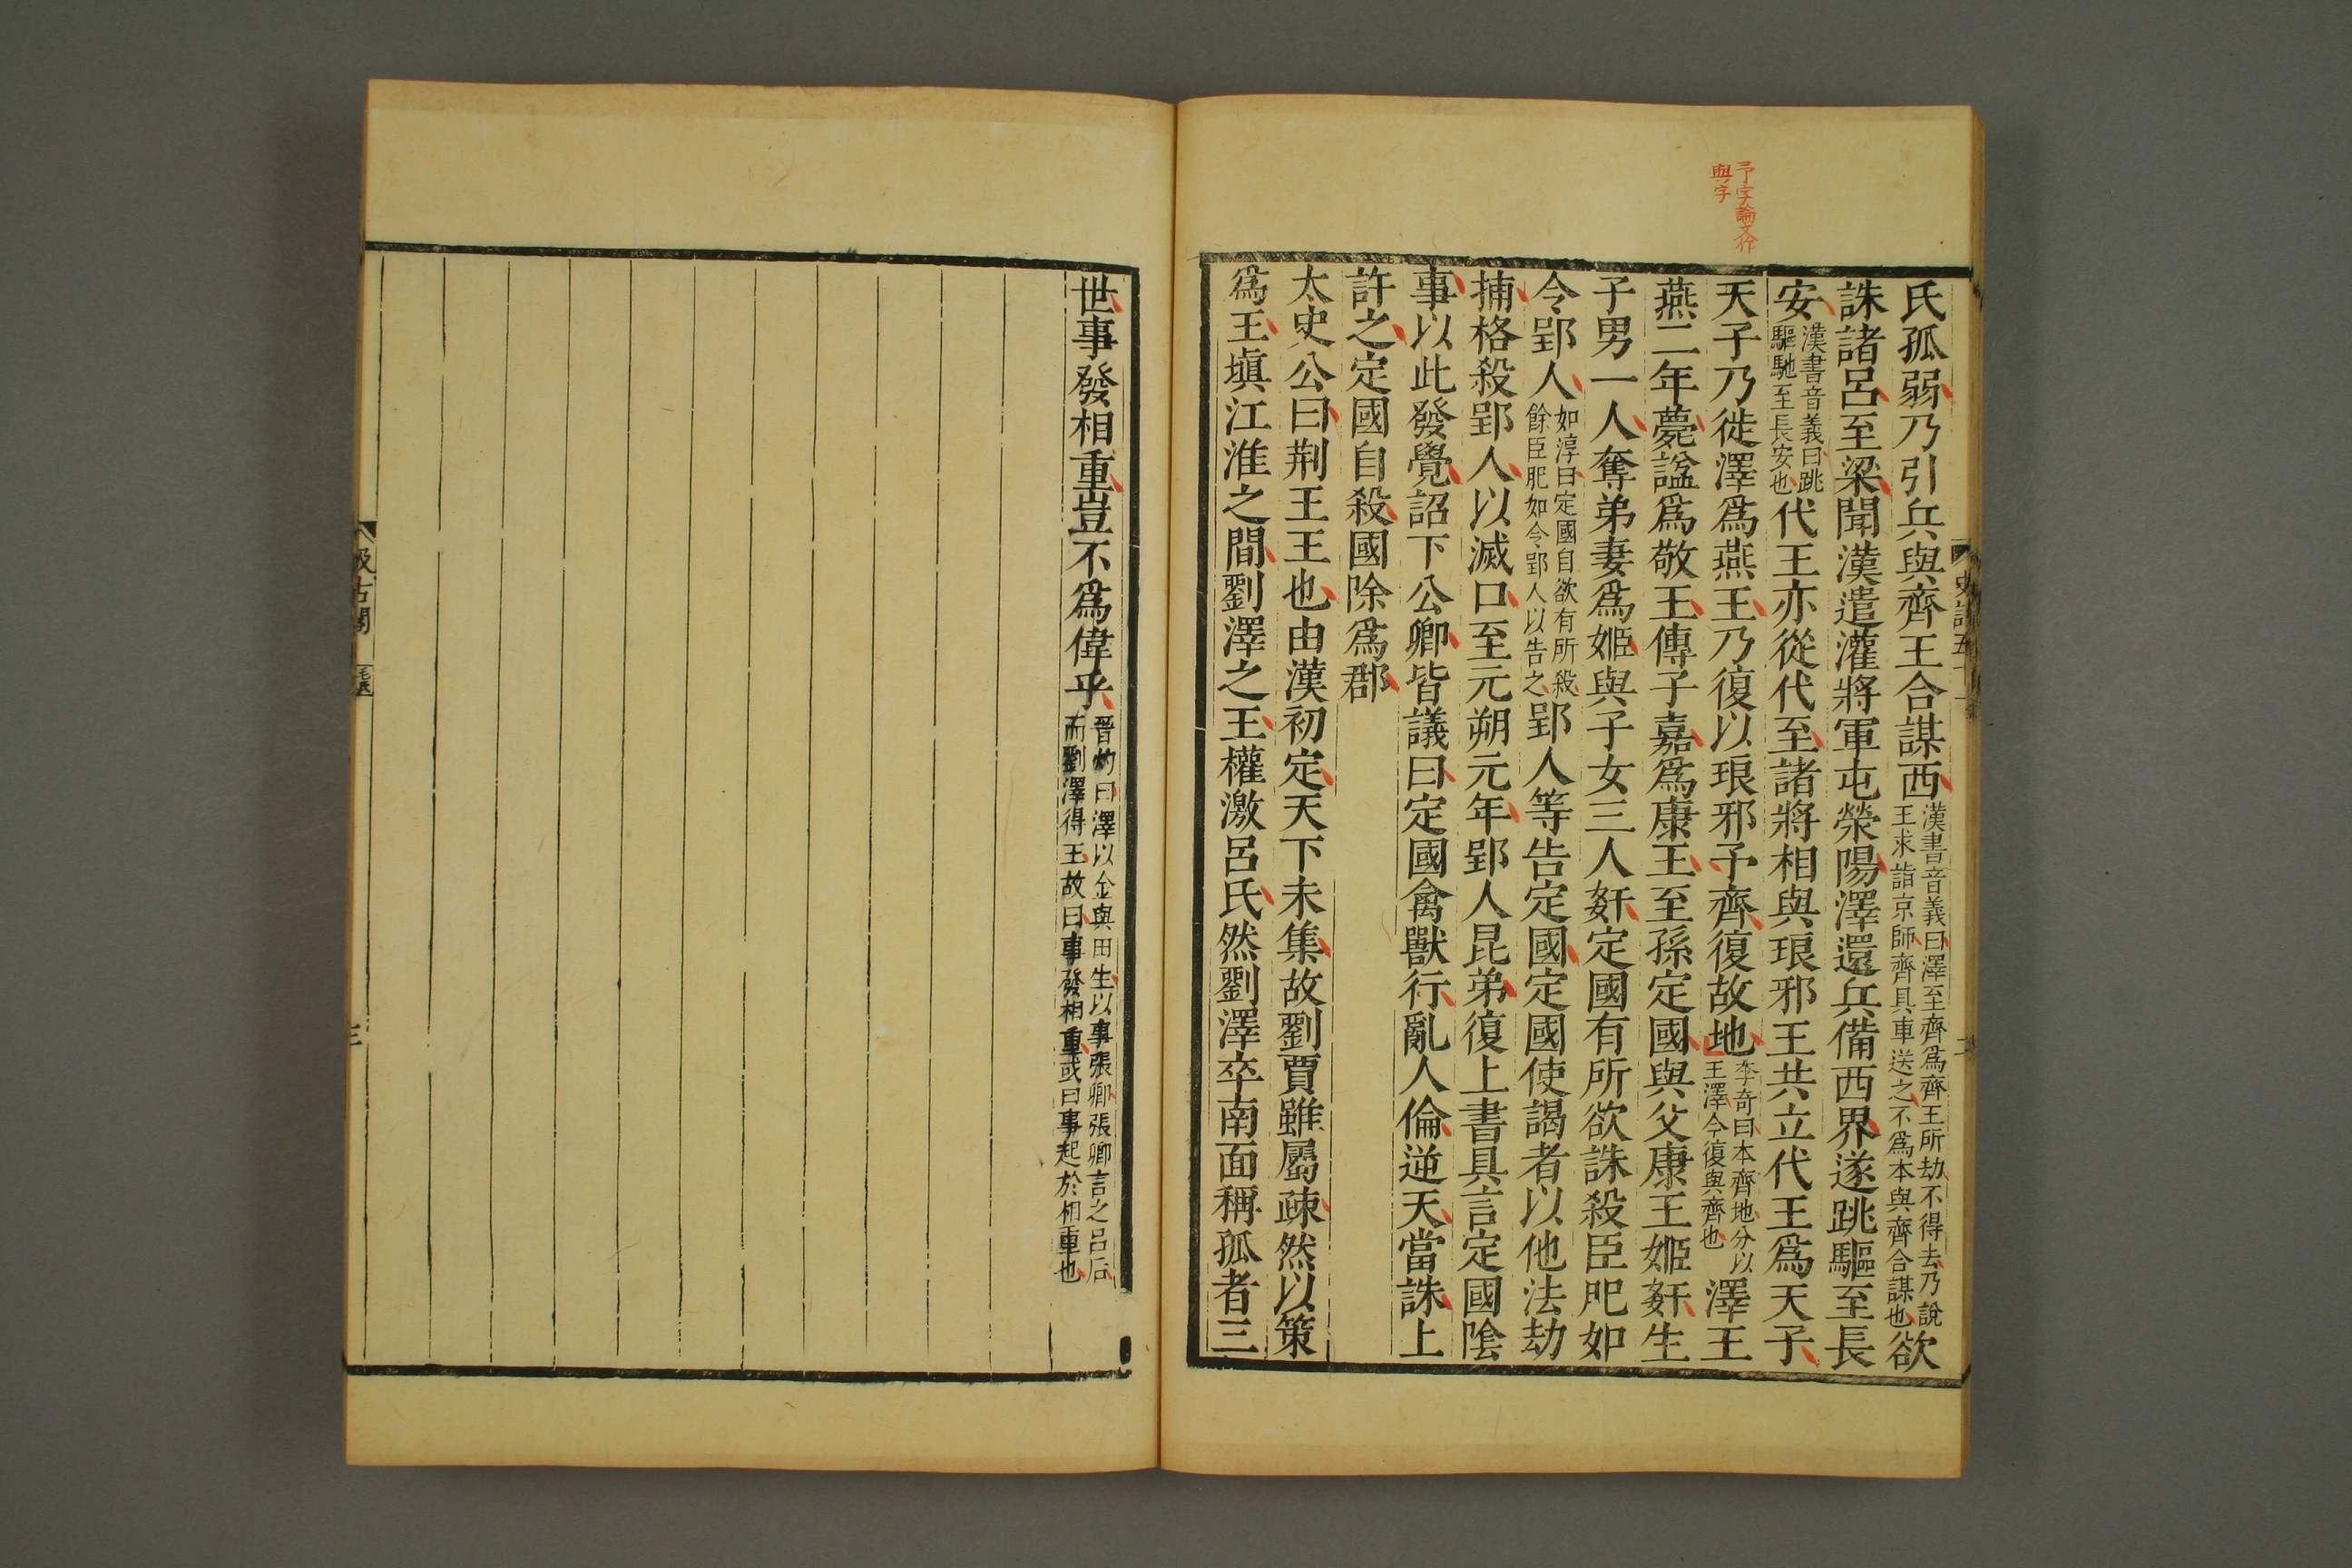 予字論文作
與字
氏孤弱乃引兵與齊王合謀西漢書音義曰澤至齊爲齊王所劫不得去乃說王求詣京師齊具車送之不爲本與齊合謀也欲
誅諸呂至梁聞漢遣灌將軍屯滎陽澤還兵備西界遂跳驅至長
安漢書音義曰跳驅馳至長安也代王亦從代至諸將相與琅邪王共立代王爲天子
天子乃徙澤爲燕王乃復以琅邪予齊復故地李奇曰本齊地分以王澤今復與齊也澤王
燕二年薨諡爲敬王傳子嘉爲康王至孫定國與父康王姬姧生
子男一人奪弟妻爲姬與子女三人姧定國有所欲誅殺臣肥如
令郢人如淳曰定國自欲有所殺餘臣肥如令郢人以告之郢人等告定國定國使謁者以他法劾
捕格殺郢人以滅口至元朔元年郢人昆弟復上書具言定國陰
事以此發覺詔下公卿皆議曰定國禽獸行亂人倫逆天當誅上
許之定國自殺國除爲郡
太史公曰荆王王也由漢初定天下未集故劉賈雖屬疎然以策
爲王塡江淮之間劉澤之王權激呂氏然劉澤卒南面稱孤者三
史記五十一
二
世事發相重豈不爲偉乎晉灼曰澤以金與田生以事張卿張卿言之呂后而劉澤得王故曰事發相重或曰事起於相重也
汲古閣
毛氏
三